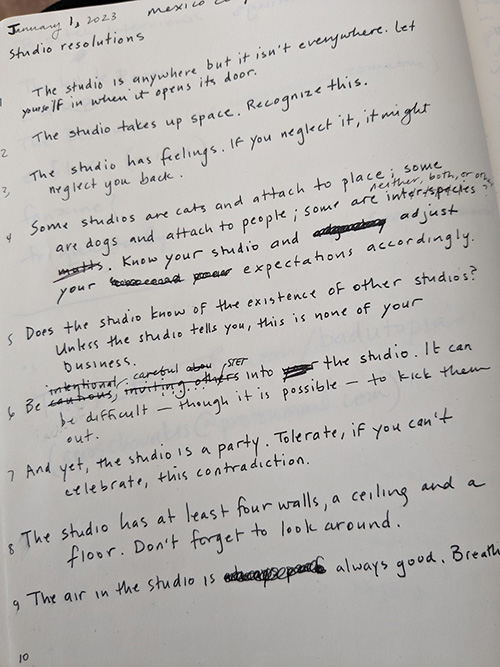 January 1, 2023 Mexico
Studio resolutions
1 The studio is anywhere but it isn't everywhere. Let
yourself in when it opens its door.
2 The studio takes up space. Recognize this.
3, The studio has feelings. If you neglect it, it might
neglect you back.
4 Some studios are cats and attach to place; some
neither, both, or other
are dogs and attach to people; some are interspecies
mutts. Know your studio and adjust
your expectations accordingly.
5 Does the studio know of the existence of other studios?
Unless the studio tells you, this is none of your
business.
intentional, careful abou STET
6 Be cautious, inviting others into the studio. It can
be difficult – though it is possible – to kick them
out.
7 And yet, the studio is a party. Tolerate, if you can't
celebrate, this contradiction.
8 The studio has at least four walls, a ceiling and a
floor. Don't forget to look around.
9 The air in the studio is always good. Breath
10